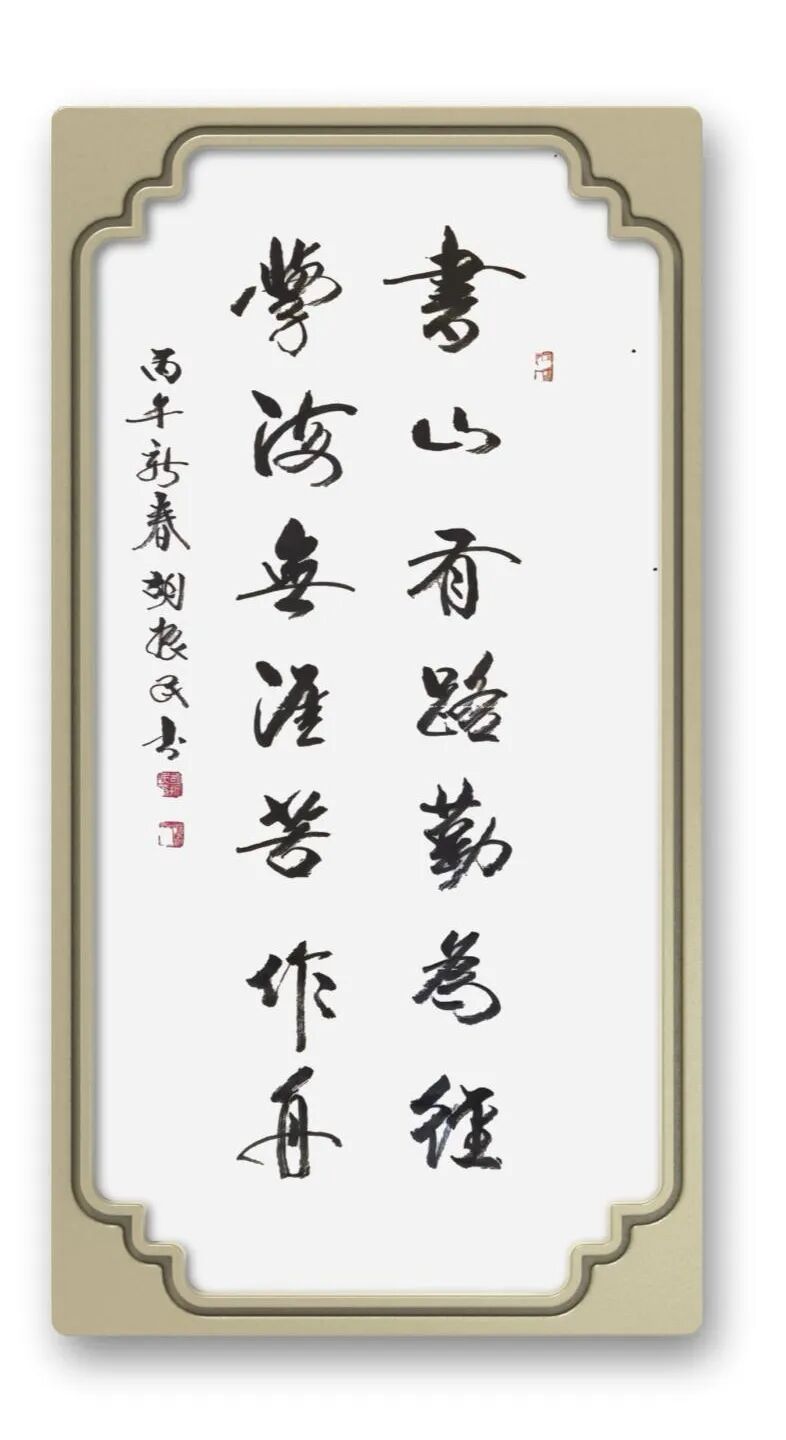 書山有路勤為徑
學海無涯苦作舟
丙午新春胡振民书